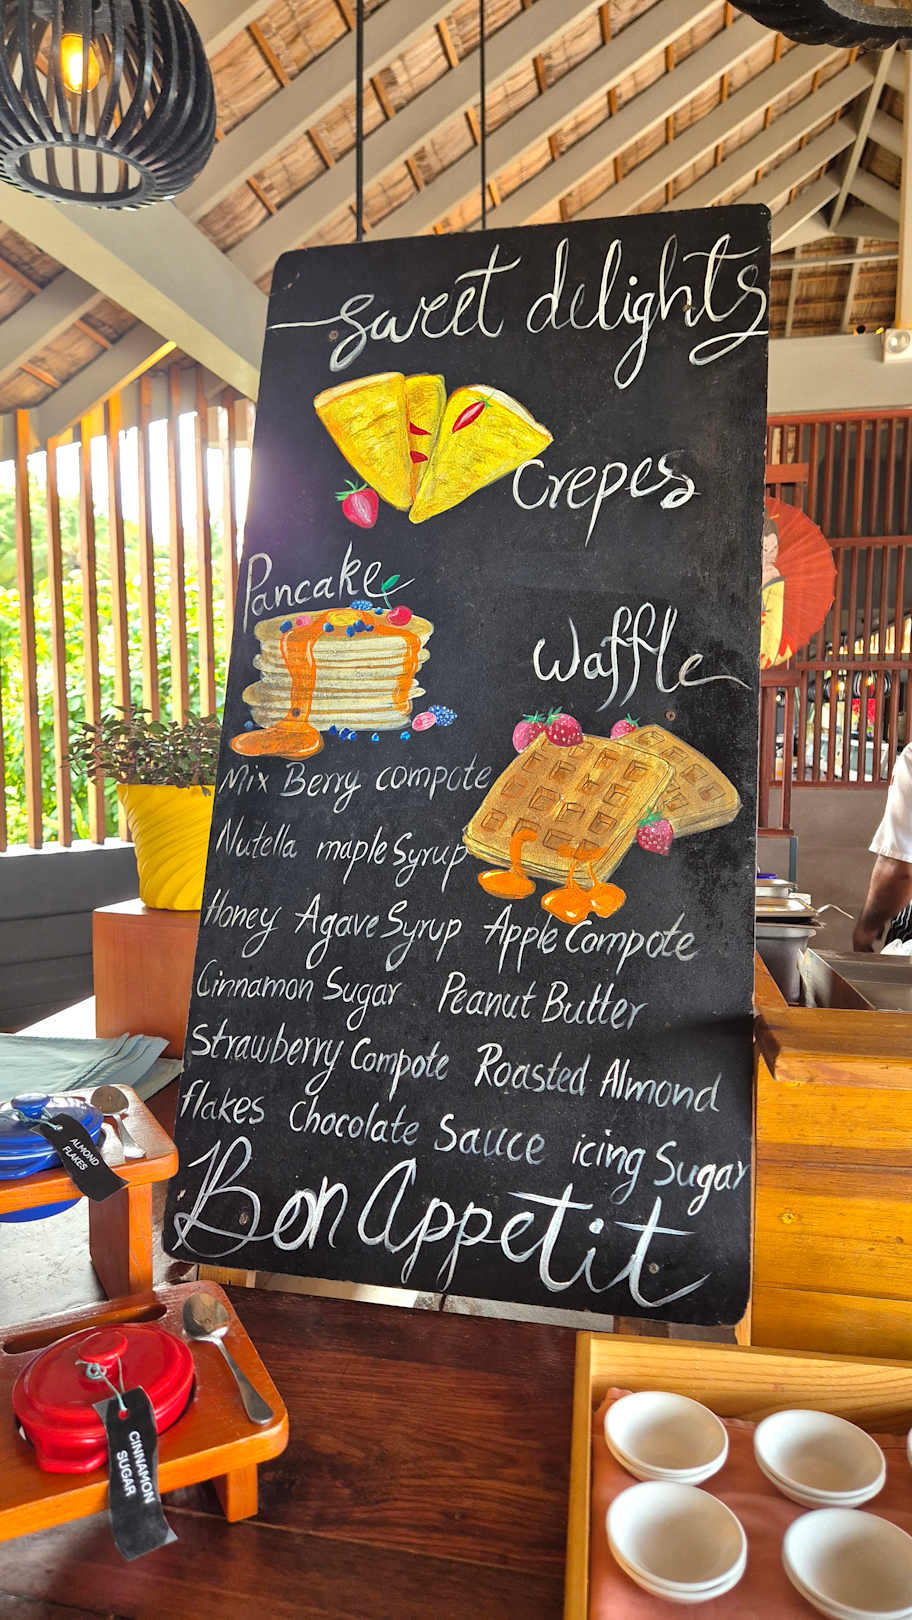 Sweet delights
Crepes
Pancake
Waffle
Mix Berry compote
Nutella maple Syrup
Honey Agave Syrup Apple Compote
Cinnamon Sugar Peanut Butter
Strawberry Compote Roasted Almond
flakes Chocolate Sauce icing Sugar
Bon Appetit
ALMOND
FLAKES
CINNAMON
SUGAR